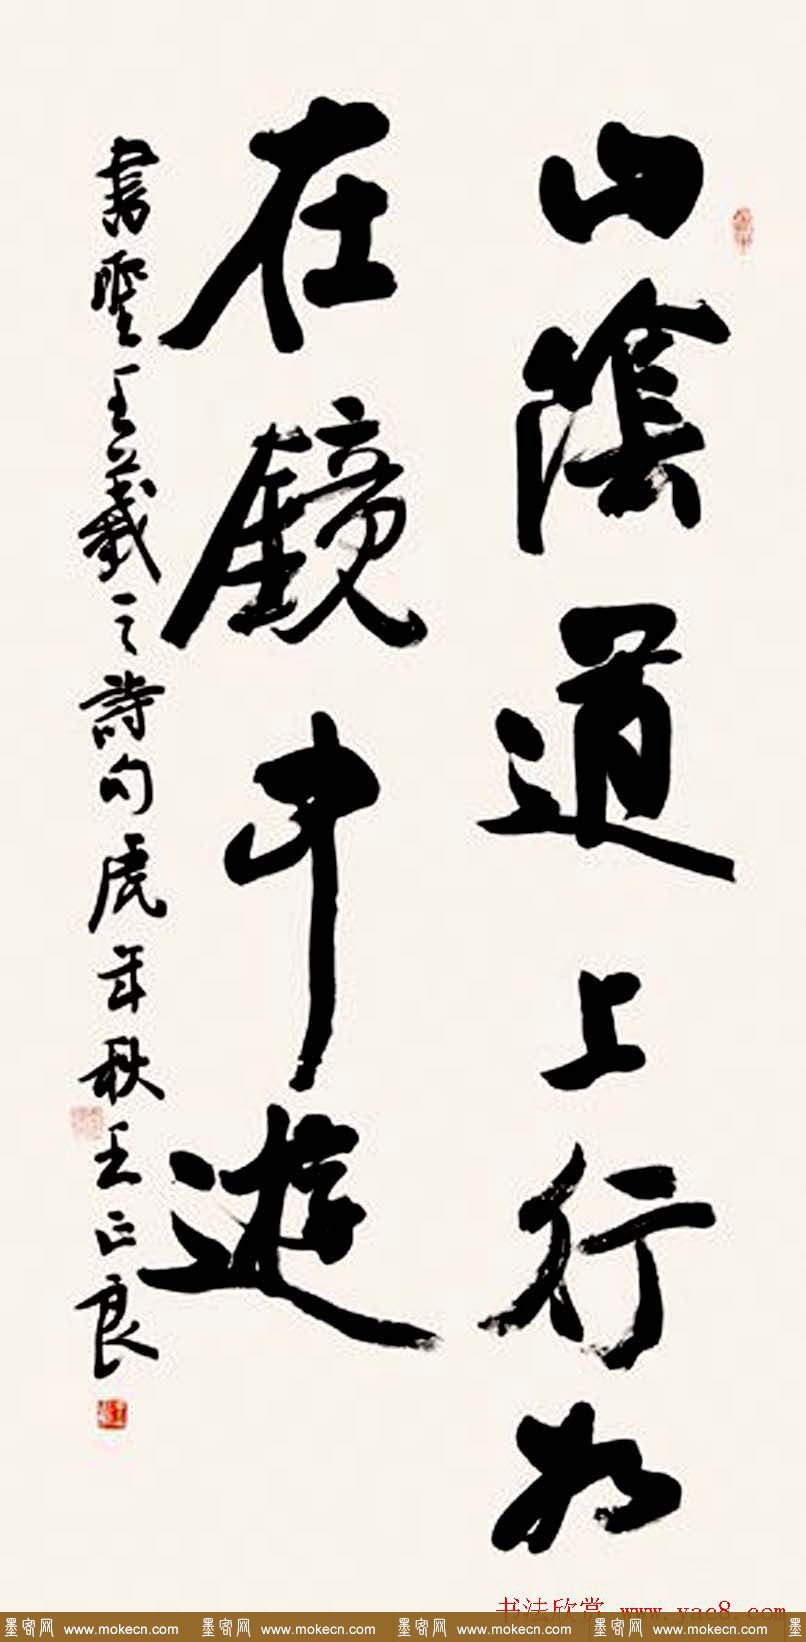 山陰道上行如
在鏡中遊
書聖王羲之詩句虎年秋王正良
书法欣赏 www.yac8.com
墨客网 www.mokecn.com 墨客网 www.mokecn.com 墨客网 www.mokecn.com 墨客网 www.mokecn.com